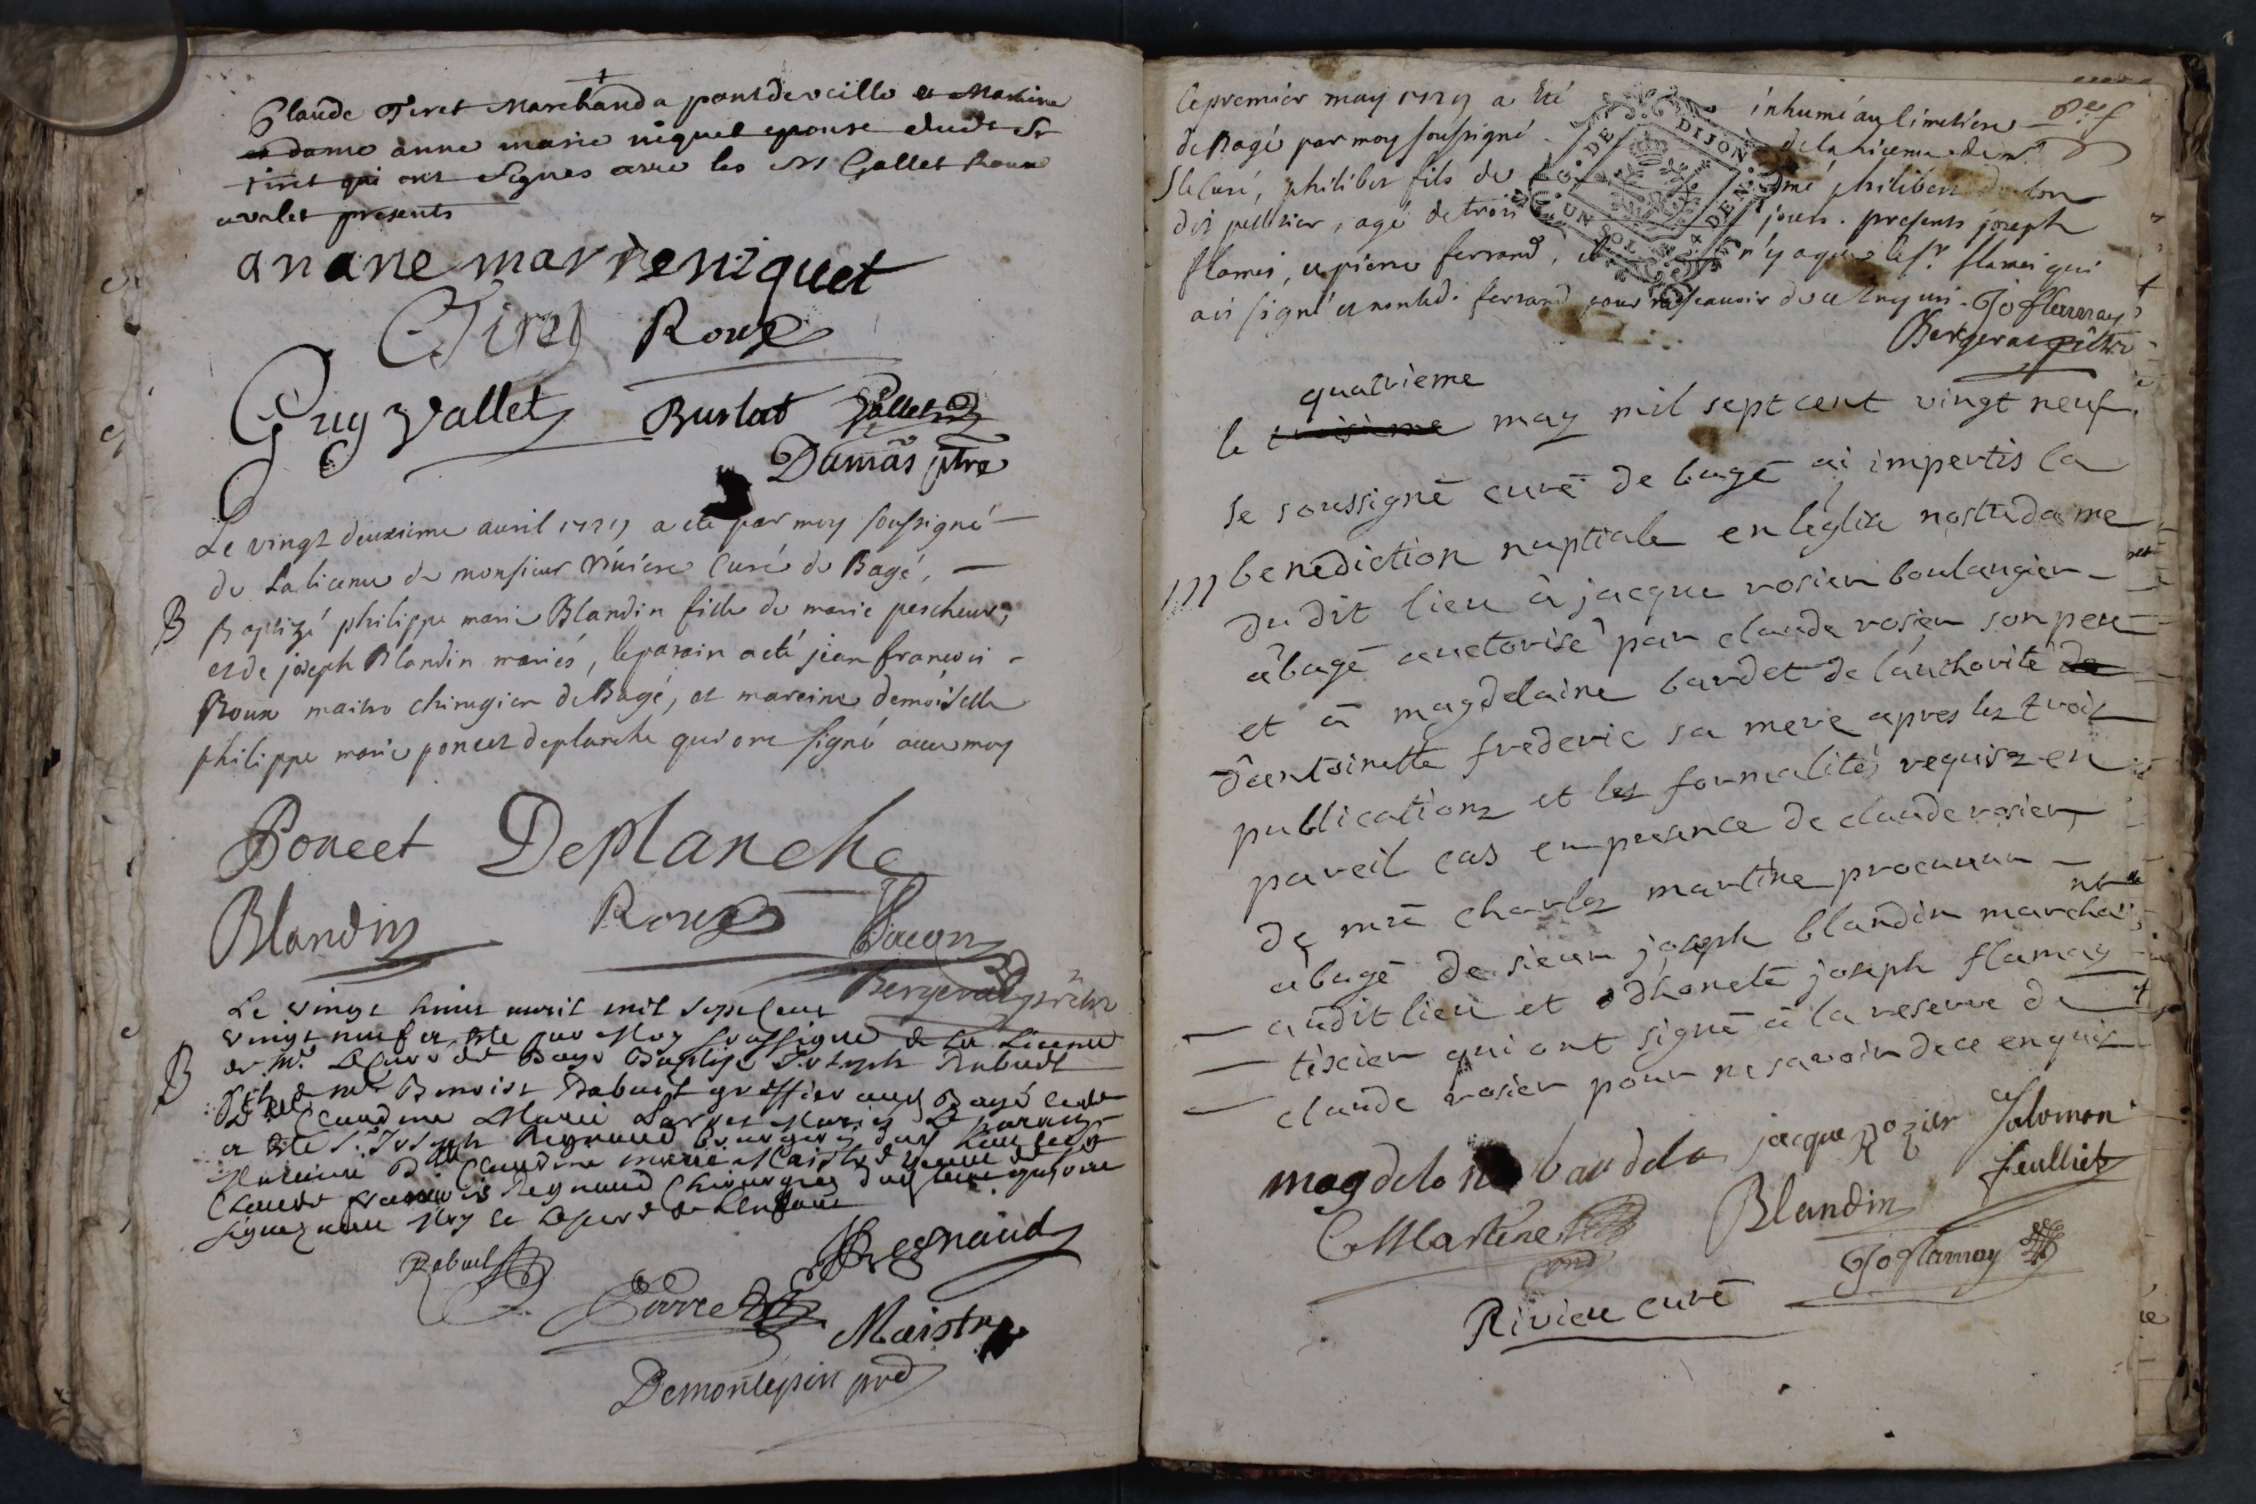 Claude Tiret Marchand a pont de veille et Marine
dame anne marie niquet epouse dudt Sr
tiret qui ont Signes avec les Mr Gallet Roux
avalet presents
anane marie niquet
Tiret Roux
Guy vallet Burlat Gallet
Damas ptre
Le vingt deuxieme avril 1729 a ete par moy soussigné
de La licence de monsieur Riviere Curé de Bagé,
B
Baptizé philippe marie Blandin fille de marie pescheur,
et de joseph Blandin mariés, le parain a eté jean francois
Roux maitre chirugien de Bagé, et mareine demoiselle
philippe marie poncet deplanche qui ont signé avec moy
Poncet Deplanche
Blandin Roux
Bergerat prêtre
Le vingt huit avril mil sept cent
vingt neuf a ete par Moy soussigné de la Licence
de Mr Le Curé de Bagé Baptisé Joseph Rabuel
B
fils de Mr Benoist Rabuel greffier aud Bagé et de
Claudine Marie mariez Le parain
a ete Sr Joseph Regnaud bourgeois dud lieu et
Mareine Claudine marie Maistre
Claude francois Regnaud Chirurgien dud lieu qui ont
signez avec Moy
Rabuel Regnaud
Maistre
Demontepin
Le premier may 1729 a été inhumé au Cimetiere
de Bagé par moy soussigné de la licence de mr
le Curé, philibert fils de philibert
dit pelletier, agé de trois jours. presents joseph
flamei, et pierre ferrand, il n'y a que le sr. flamei qui
ait signé et non led. ferrand pour ne sçavoir de ce Enquis. Jo flamay
Bergerat prêtre
quatrieme
le troisieme may mil sept cent vingt neuf
Je soussigné curé de bagé ai impertis la
M benediction nuptiale en leglise nostre dame
du dit lieu à jacque rosier boulangier
a bagé auctorisé par claude rosier son pere
et à magdelaine bardet de l'authorité de
d'antoinette frederic sa mere apres les trois
publications et les formalités requises en
pareil cas en presence de claude rosier,
de mre charles martine procureur
a bagé de sieur joseph blandin marchant
audit lieu et d'honete joseph flamay
tixier qui ont signé à la reserve de
claude rosier pour ne savoir de ce enquis
jacque Rozier Salomon
feulliet
C Martine Blandin
Jo flamay
Riviere curé
DE DIJON
UN SOL